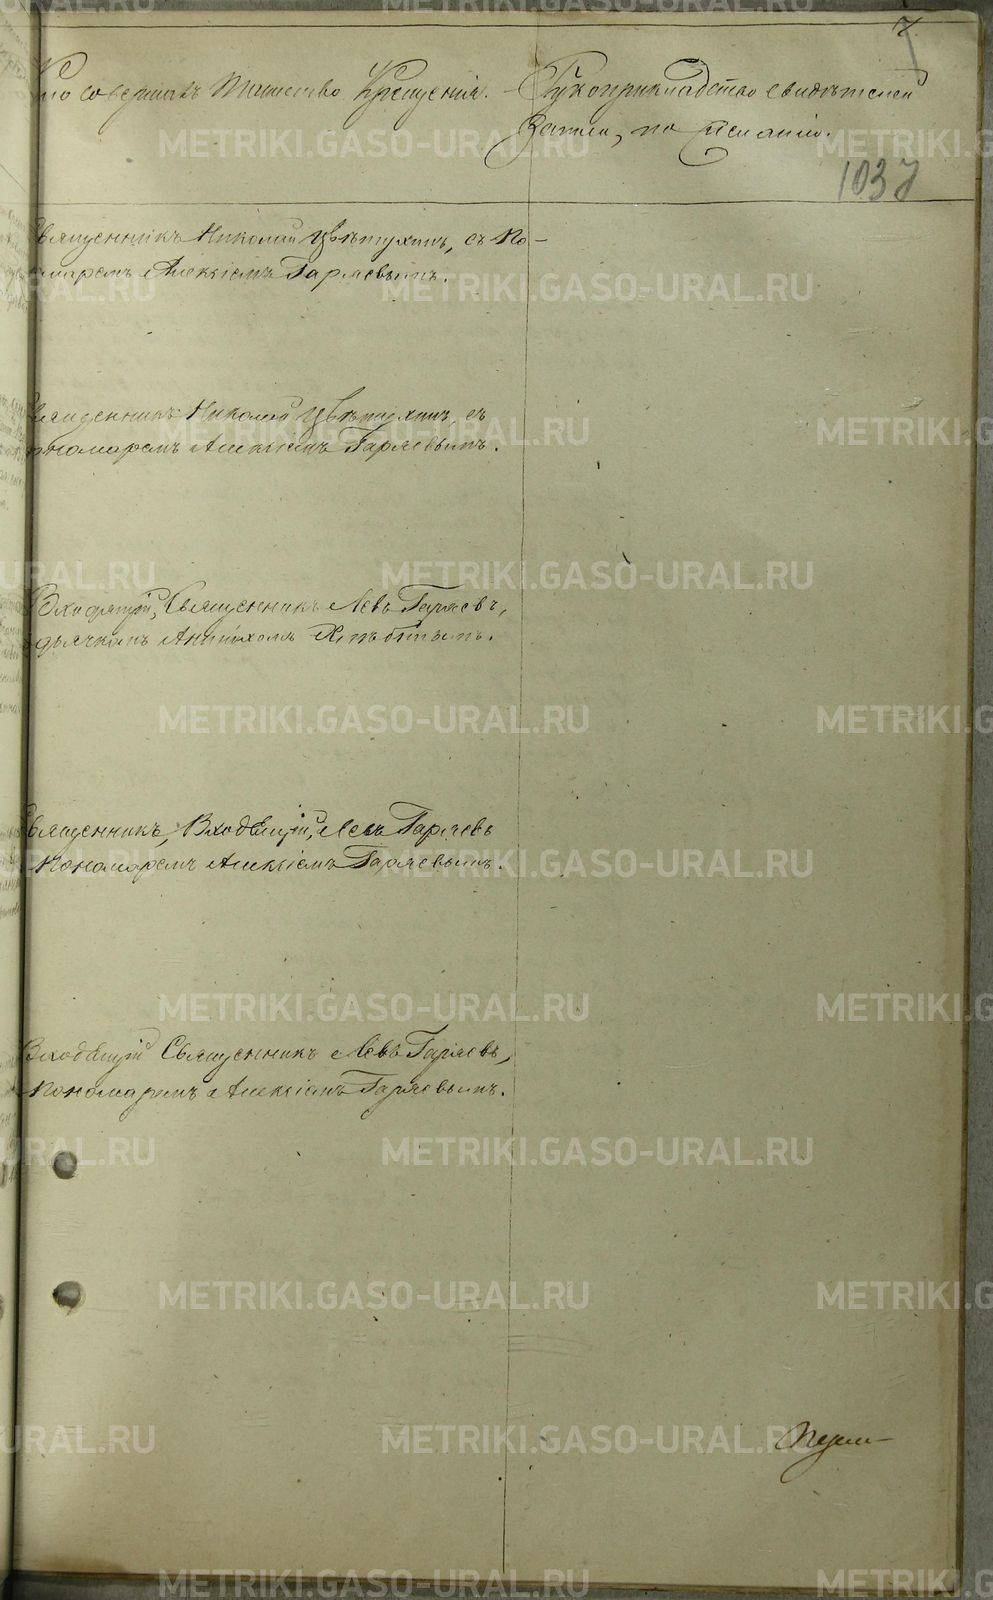 7.
Кто совершалъ таинство Крещенія.
Рукоприкладство свидѣтелей
записи, по желанію.
1037
Священникъ Николай Цвѣтухинъ, съ По-
номаремъ Алексіемъ Гаряевымъ.
Священникъ Николай Цвѣтухинъ, съ
пономаремъ Алексіемъ Гаряевымъ.
Входящій, Священникъ Левъ Гаряевъ,
дьячкомъ Антіохомъ
Священникъ, Входящій, Левъ Гаряевъ
Пономаремъ Алексіемъ Гаряевымъ.
Входящій Священникъ Левъ Гаряевъ,
Пономаремъ Алексіемъ Гаряевымъ.
METRIKI.GASO-URAL.RU